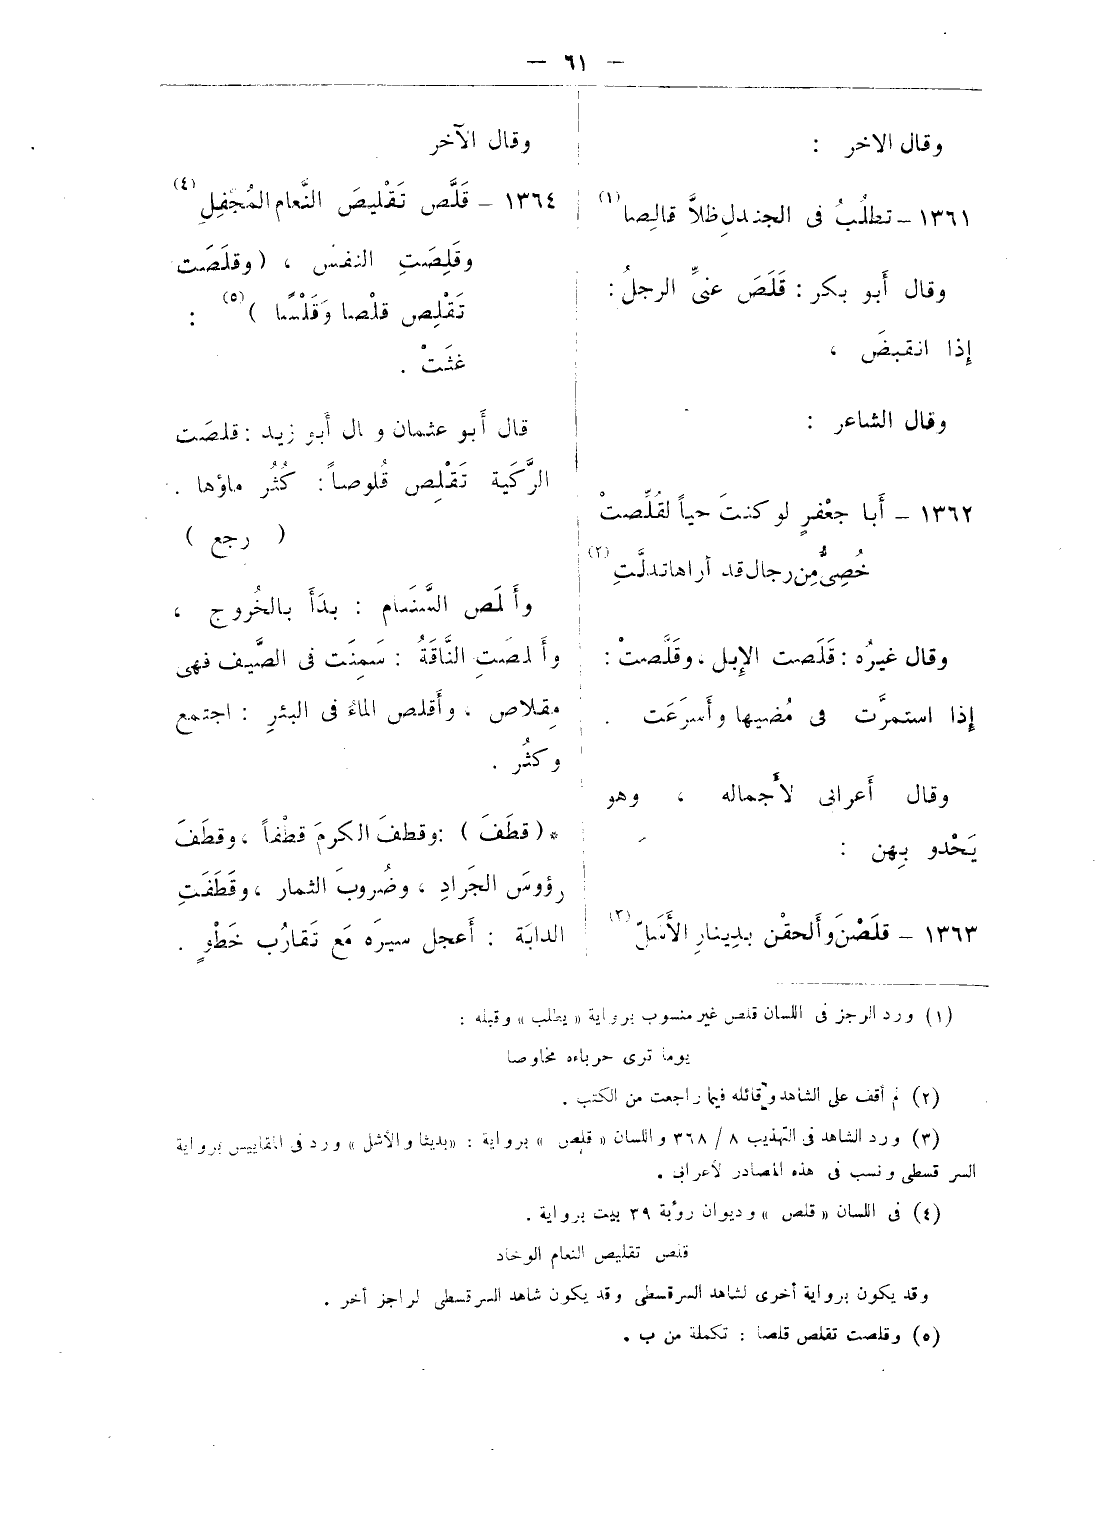 — ٦١ —
وقال الاخر :
١٣٦١ – تطلُبُ فى الجندلِ ظلاَّ قالِصا (١)
وقال أَبو بكر : قَلَصَ عنىِّ الرجلُ :
إِذا انقبضَ ،
وقال الشاعر :
١٣٦٢ – أَبا جعْفرٍ لو كنتَ حياً لقُلِّصتْ
خُصِىٌّ مِن رجال قد أراها تدلَّتِ (٢)
وقال غيرُه : قَلَصت الإِبل ، وقَلَّصتْ :
إِذا استمرَّت فى مُضيها وأَسرَعَت .
وقال أَعرابى لأَجماله ، وهو
يَحْدو بِهن :
١٣٦٣ – قلَصْنَ وأَلحقْن بدِينارِ الأَسَلّ (٣)
وقال الآخر
١٣٦٤ – قَلَّص تَقْليصَ النَّعام المُجْفِلِ (٤)
وقَلِصَتِ النفسُ ، (وقلَصَت
تَقْلِص قلْصا وَقَلْسًا ) (٥) :
غثَتْ .
قال أَبو عثمان و ال أَبو زيد : قلصَت
الرَّكَية تَقْلِص قُلوصاً : كُثُر ماؤها .
( رجع )
وأَ لمَص السَّنَام : بدَأَ بالخُروج ،
وأَ لمصَتِ النَّاقَةُ : سَمِنَت فى الصَّيف فهى
مِقلاص ، وأَقلص الماءُ فى البئرِ : اجتمع
وكثُر .
* ( قطَفَ ) : وقطفَ الكرمَ قطْفاً ، وقطَفَ
رؤوسَ الجَرادِ ، وضُروبَ الثمار ، وقَطَفَتِ
الدابَة : أَعجل سيرَه مَع تَقارُب خَطْوٍ .
(١) ورد الرجز فى اللسان قلص غير منسوب برواية « يطلب » وقبله :
يوما ترى حرباءه مخاوصا
(٢) لم أقف على الشاهد وقائله فيما راجعت من الكتب .
(٣) ورد الشاهد فى التهذيب ٨ / ٣٦٨ واللسان « قلص » برواية : «بدينا والأشل » ورد فى المقاييس برواية
السرقسطى ونسب فى هذه المصادر لأعرابى .
(٤) فى اللسان « قلص » وديوان رؤبة ٣٩ بيت برواية .
قلص تقليص النعام الوخاد
وقد يكون برواية أخرى لشاهد السرقسطى وقد يكون شاهد السرقسطى لراجز أخر .
(٥) وقلصت تقلص قلصا : تكملة من ب .